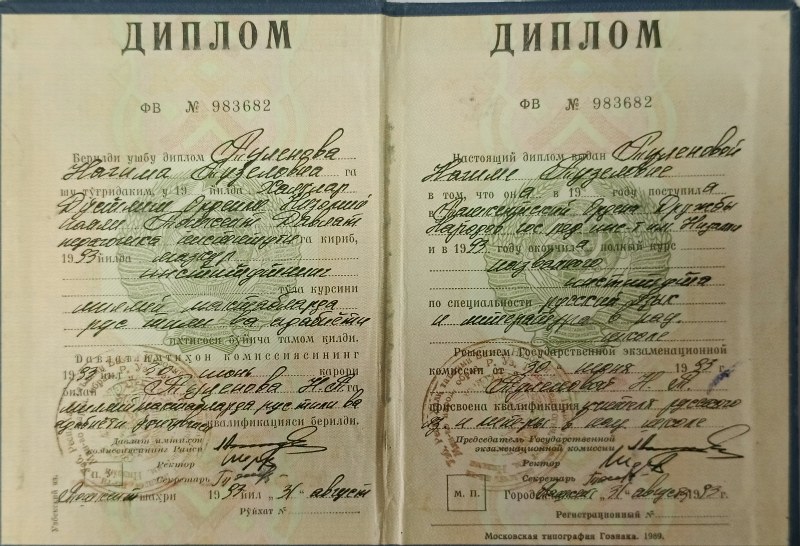 ДИПЛОМ
ФВ № 983682
Берилди ушбу диплом Туленова
Нагима Тузеловна га
шу тўғридаким, у 19 йилда Халқлар
Дўстлиги Ордени Низомий
Давлат
педагогика институтига кириб,
1993 йилда мазкур
институтнинг
тўла курсини
миллий мактабларда
рус тили ва адабиёти
ихтисоси бўйича тамом қилди.
Давлат имтиҳон комиссиясининг
1993 йил 30 июнь карори
билан Туленова Н.Т. га
миллий мактабларда рус тили ва
адабиёти квалификацияси берилди.
Давлат имтиҳон
комиссиясининг Раиси
Ректор
Секретарь
М. П.
шаҳри 1993 йил „31" август
Рўйхат №
Узбекский яз.
ДИПЛОМ
ФВ № 983682
Настоящий диплом выдан Туленовой
Нагиме Тузеловне
в том, что она в 19 году поступила
в Ташкентский Ордена Дружбы
Народов гос. пед. инс-т им. Низами
и в 1993 году окончила полный курс
названного
института
по специальности русский язык
и литература в нац.
школе
Решением Государственной экзаменационной
комиссии от 30 июня 1993 г.
Туленовой Н. Т.
присвоена квалификация учителя русского
яз. и лит-ры в нац. школе
Председатель Государственной
экзаменационной комиссии
Ректор
Секретарь
М. П.
Город „31" август 1993 г.
Регистрационный №
Московская типография Гознака. 1989.